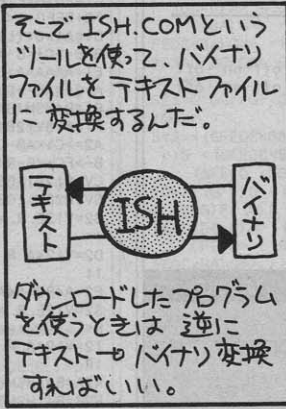 そこで ISH.COMという
ツールを使って、バイナリ
ファイルを テキストファイル
に 変換するんだ。
テキスト
ISH
バイナリ
ダウンロードしたプログラム
を使うときは 逆に
テキスト→バイナリ変換
すればいい。